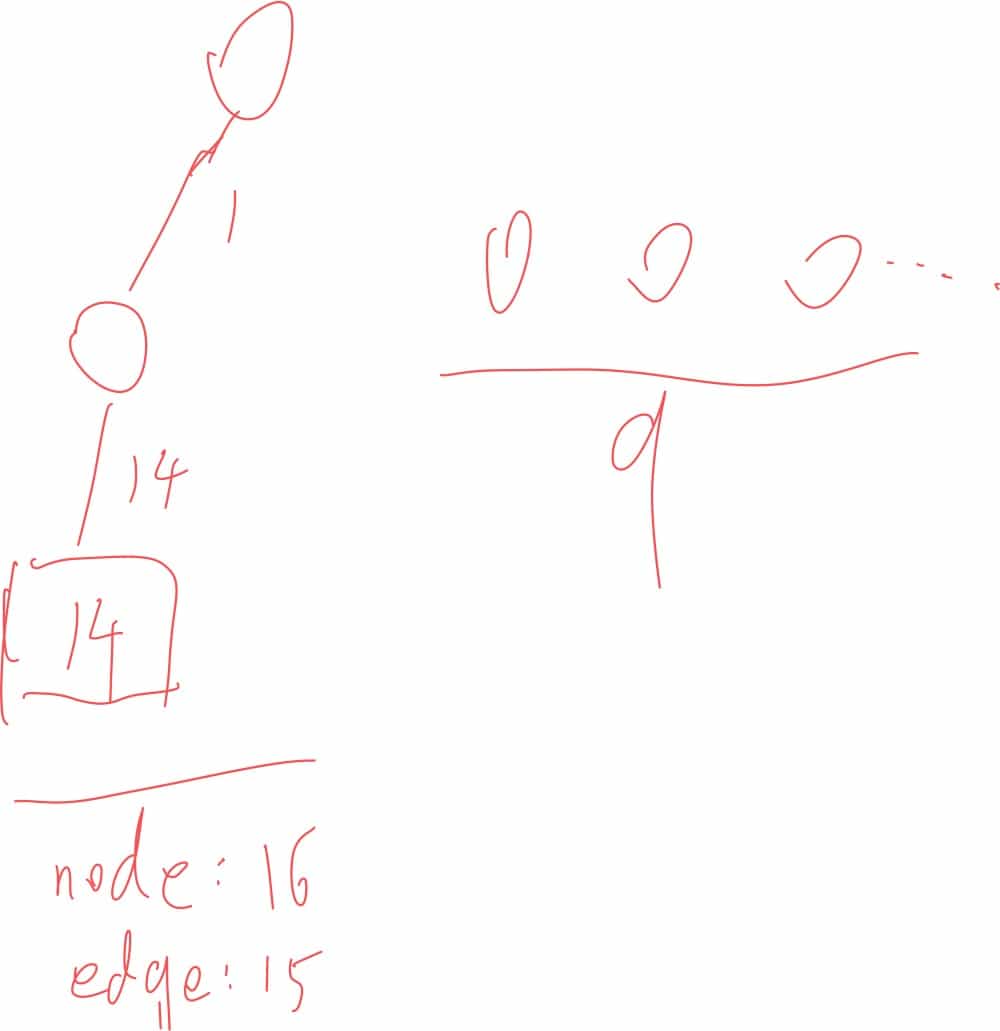 1
14
14
node: 16
edge: 15
9